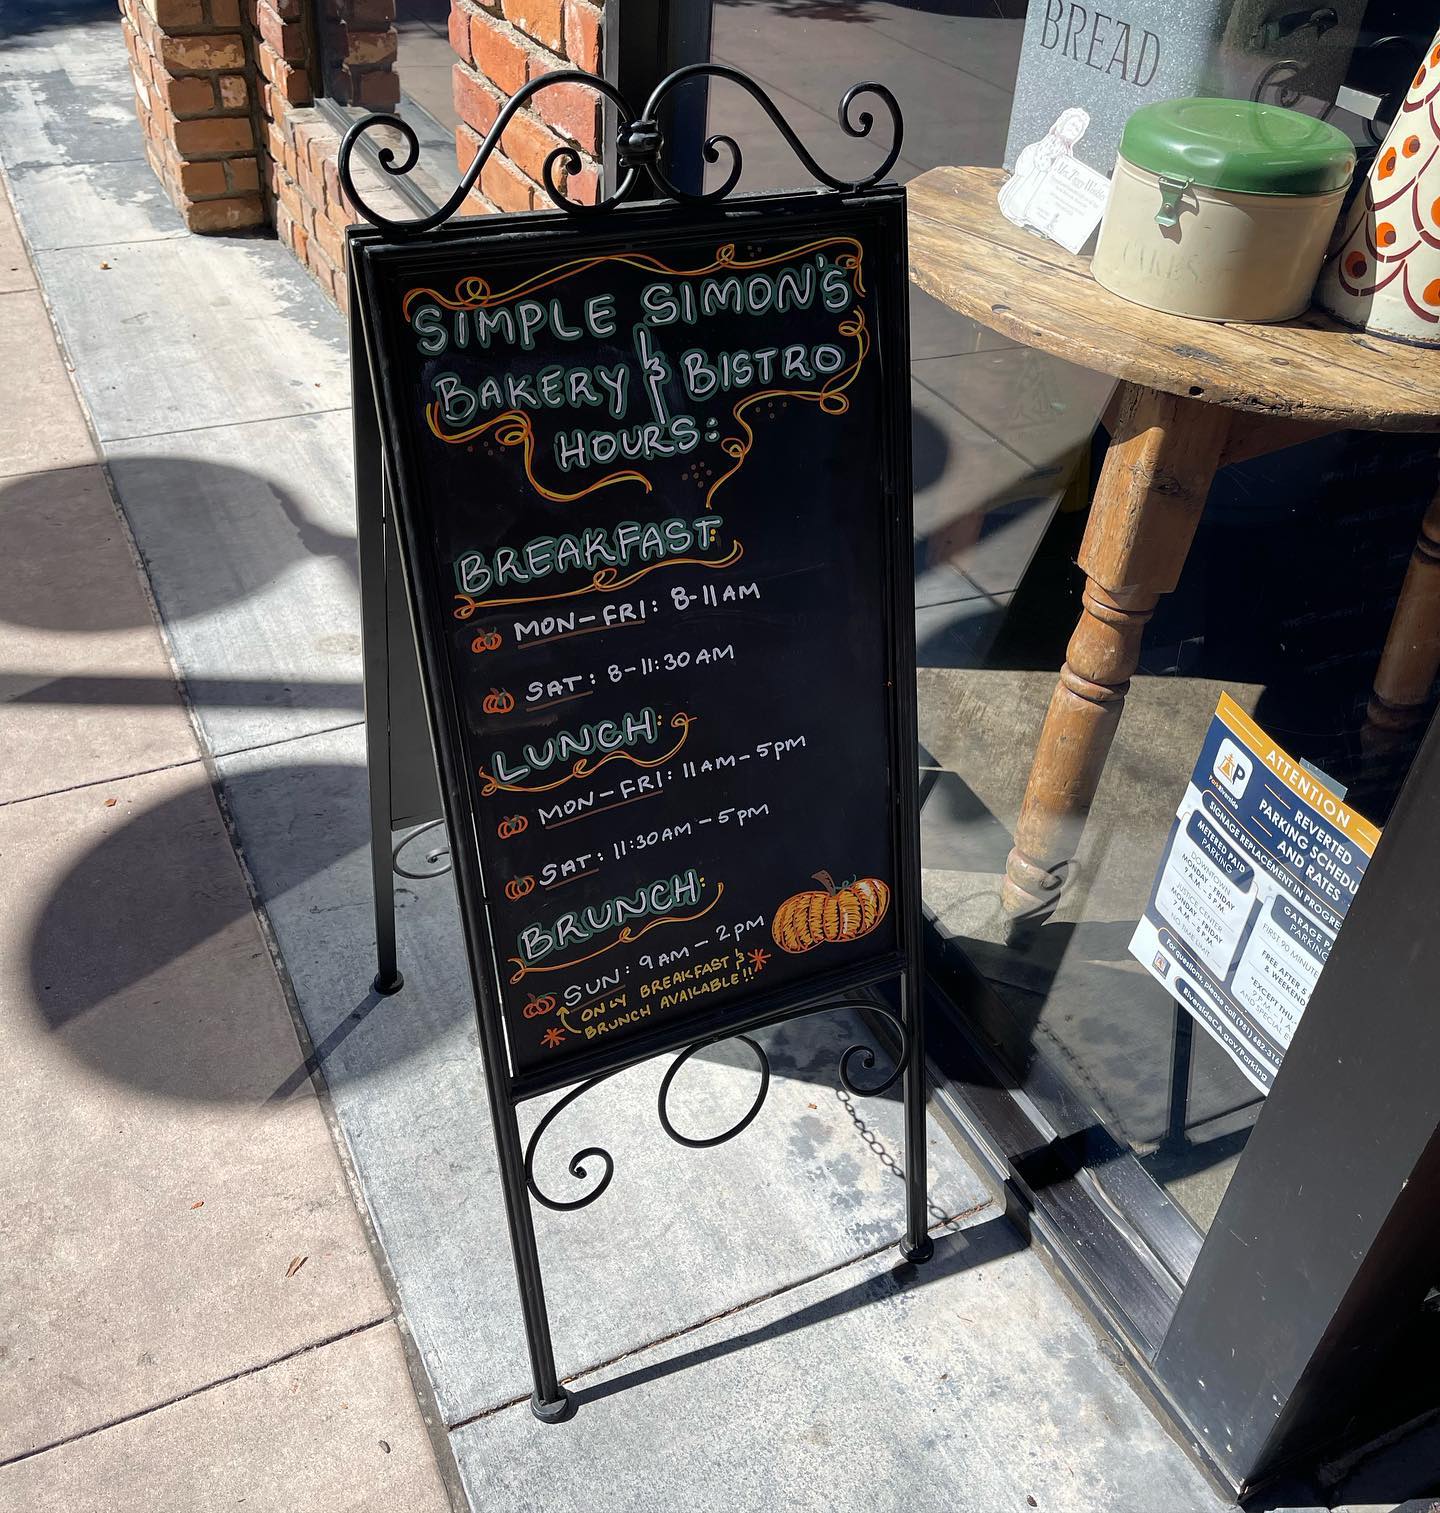 BREAD
CAKES
SIMPLE SIMON'S
BAKERY & BISTRO
HOURS:
BREAKFAST:
MON-FRI: 8-11AM
SAT: 8-11:30AM
LUNCH:
MON-FRI: 11AM-5PM
SAT: 11:30AM-5PM
BRUNCH:
SUN: 9AM-2PM
*ONLY BREAKFAST &*
BRUNCH AVAILABLE!!
ATTENTION
P
ParkRiverside
REVERTED
PARKING SCHEDU
AND RATES
SIGNAGE REPLACEMENT IN PROGRES
METERED PAID
PARKING
DOWNTOWN
MONDAY - FRIDAY
9 A.M. - 5 P.M.
JUSTICE CENTER
MONDAY - FRIDAY
7 A.M. - 5 P.M.
NO TIME LIMIT
GARAGE PA
PARKING
FIRST 90 MINUTE
FREE AFTER 5
& WEEKEND
*EXCEPT THU
AND SPECIAL E
For questions, please call (951) 682-316
RiversideCA.gov/Parking